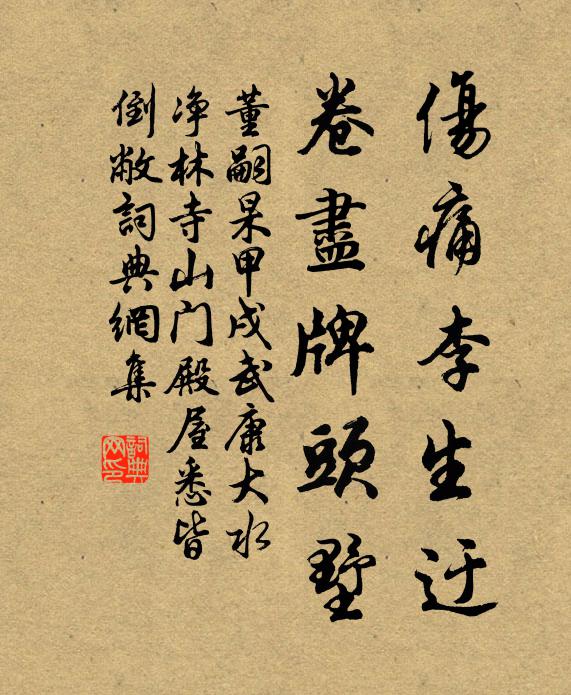 傷痛李生迂
卷盡牌頭墅
董嗣杲甲戌武康大水
净林寺山门殿屋悉皆
倒敝詞典網集
詞典网印